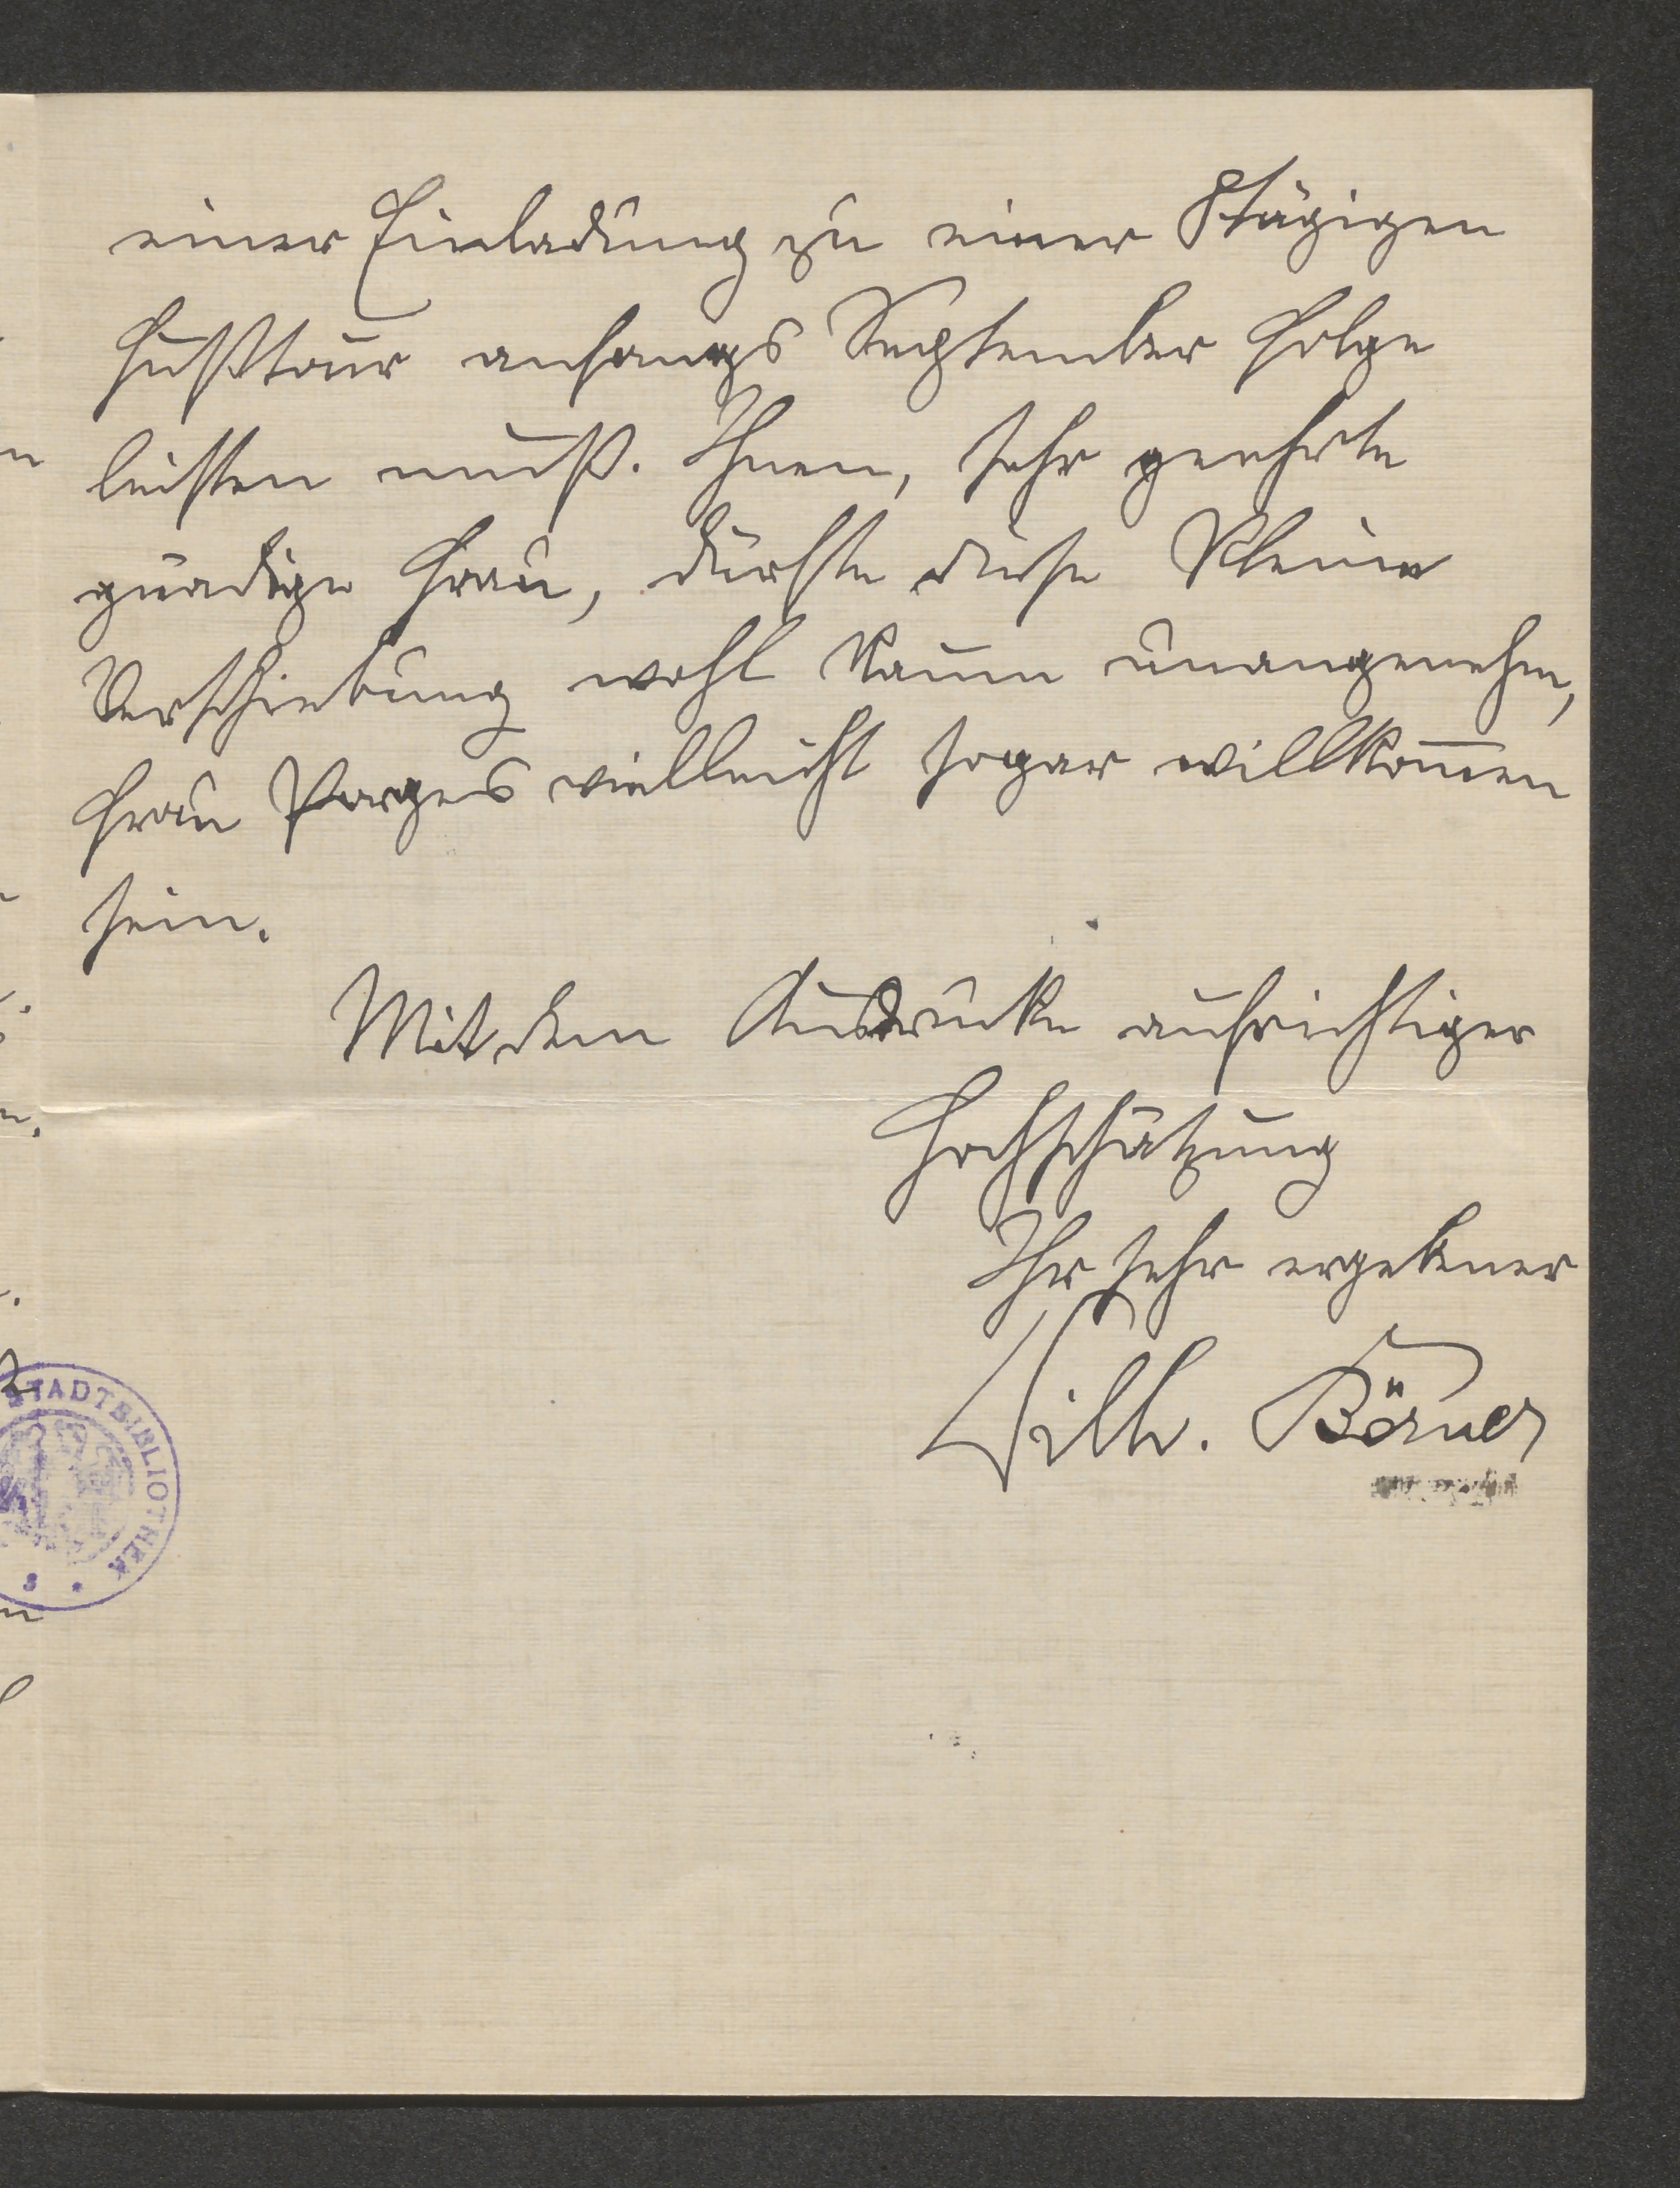 einer Einladung zu einer 8tägigen
Fußtour anfangs September Folge
leisten muß. Ihnen, sehr geehrte
gnädige Frau, dürfte diese kleine
Verschiebung wohl kaum unangenehm,
Frau Porges vielleicht sogar willkom̅en
sein.
Mit dem Ausdrucke aufrichtiger
Hochschätzung
Ihr sehr ergebener
Wilh. Börner
STADTBIBLIOTHEK